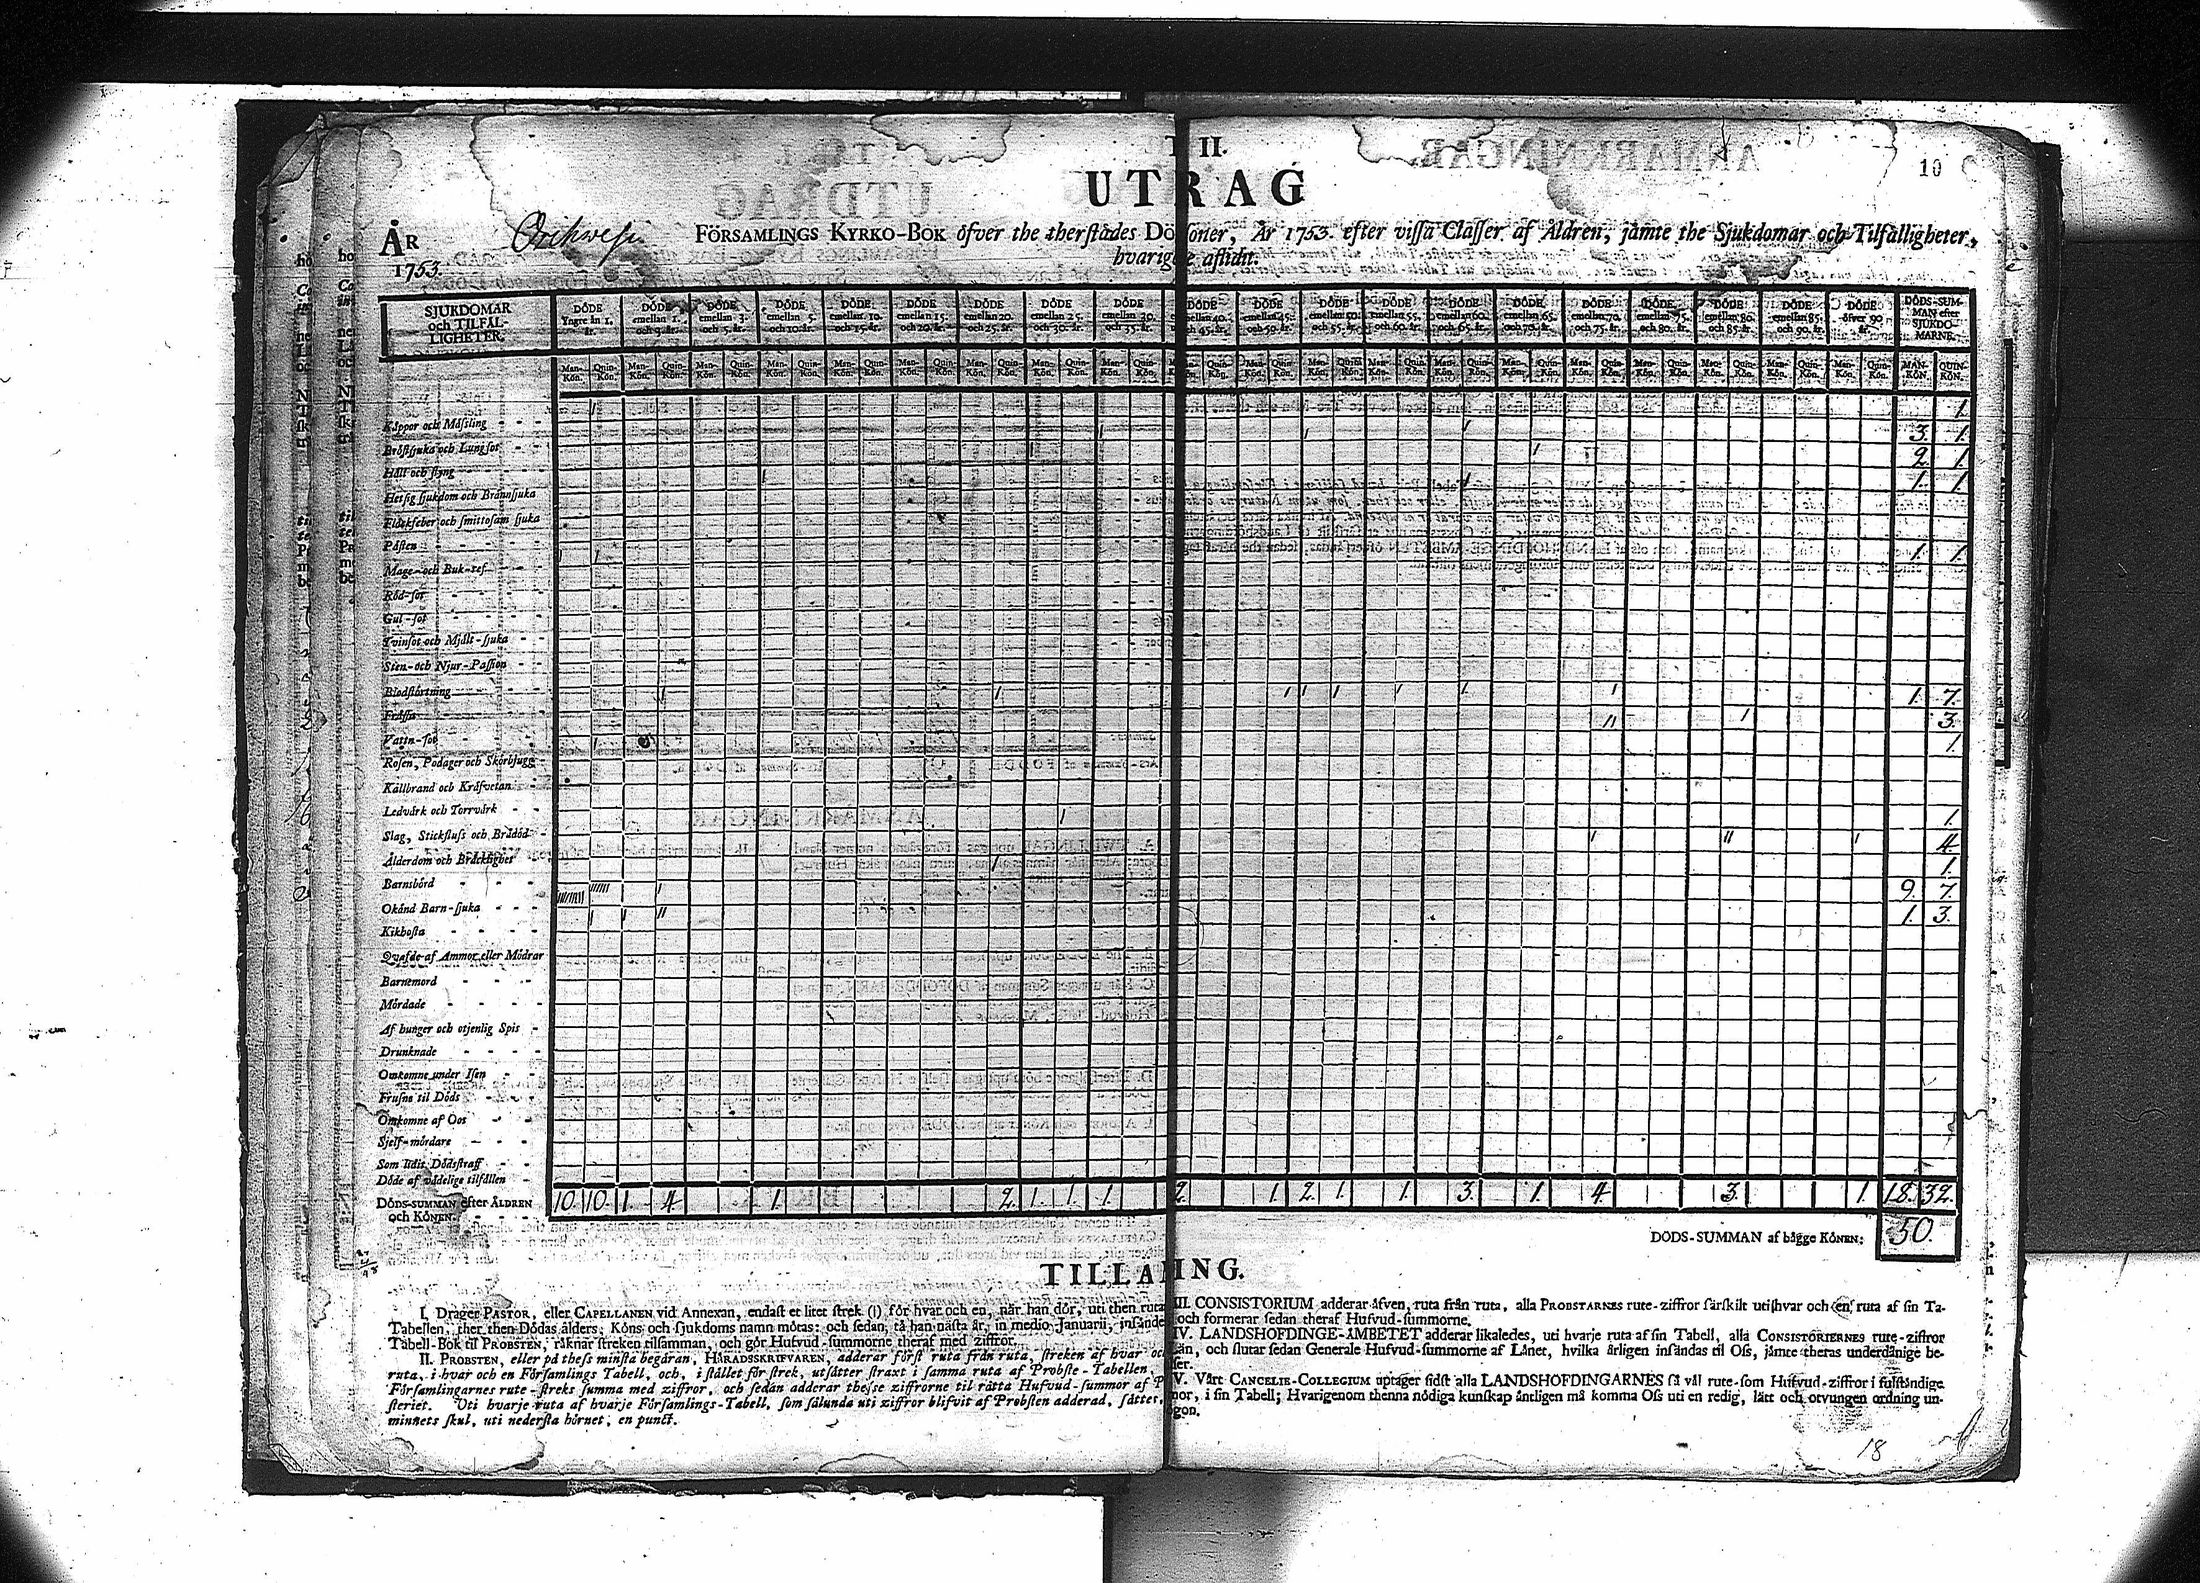 T II.
10
UTRAG
ÅR 1753.
FÖRSAMLINGS KYRKO-BOK öfver the therstädes Dö soner, År 1753. efter vissa Classer af Åldren, jämte the Sjukdomar och Tilfälligheter,
hvarig e aflidit.
SJUKDOMAR och TILFÄL-LIGHETER.
DÖDE Yngre än 1. år.
DÖDE emellan 1. och 3. år.
DÖDE emellan 3. och 5. år.
DÖDE emellan 5. och 10. år.
DÖDE emellan 10. och 15. år.
DÖDE emellan 15. och 20. år.
DÖDE emellan 20. och 25. år.
DÖDE emellan 25. och 30. år.
DÖDE emellan 30. och 35. år.
DÖDE emellan 40. och 45. år.
DÖDE emellan 45. och 50. år.
DÖDE emellan 50. och 55. år.
DÖDE emellan 55. och 60. år.
DÖDE emellan 60. och 65. år.
DÖDE emellan 65. och 70. år.
DÖDE emellan 70. och 75. år.
DÖDE emellan 75. och 80. år.
DÖDE emellan 80. och 85. år.
DÖDE emellan 85. och 90. år.
DÖDE öfver 90 år.
DÖDS-SUM-MAN efter SJUKDO-MARNE.
Man-Kön. Quin-Kön.
MAN-KÖN. QUIN-KÖN.
1.
Kåppor och Mässling 3. 1.
Bröstsjuka och Lungsot 2. 1.
Håll och styng 1. 1.
Hetsig sjukdom och Brännsjuka
Fläckfeber och smittosam sjuka
Pästen 1. 1.
Mage- och Buk-ref
Röd-sot
Gul-sot
Tvinsot och Mjält-sjuka
Sten- och Njur-Passion
Blodstörtning 1. 7.
Frässa 3.
Vattn-sot 1.
Rosen, Podager och Skörbjugg
Kallbrand och Kräfvetan
Ledvärk och Torrvärk 1.
Slag, Stickfluss och Brådöd 4.
Ålderdom och Bräcklighet 1.
Barnsbörd 9. 7.
Okänd Barn-sjuka 1. 3.
Kikhosta
Qvafde af Ammor eller Mödrar
Barnemord
Mördade
Af hunger och otjenlig Spis
Drunknade
Omkomne under Isen
Frusne til Döds
Omkomne af Oos
Sjelf-mördare
Som lidit Dödsstraff
Döde af vådelige tilfällen
DÖDS-SUMMAN efter ÅLDREN och KÖNEN. 10. 10. 1. 4. 1. 2. 1. 1. 1. 2. 1. 2. 1. 1. 3. 1. 4 3. 1. 18. 32.
DÖDS-SUMMAN af bägge KÖNEN; 50.
TILLA ING.
I. Drager PASTOR, eller CAPELLANEN vid Annexan, endast et litet strek (l) för hvar och en, när han dör, uti then ruta
Tabellen, ther then Dödas ålders, Köns och sjukdoms namn mötas: och sedan, tå han nästa år, in medio Januarii, insände
Tabell-Bok til PROBSTEN, räknar streken tillsamman, och gör Hufvud-summorne theraf med ziffror.
II. PROBSTEN, eller på thess minsta begäran, HÄRADSSKRIFVAREN, adderar först ruta från ruta, streken af hvar oc
ruta, i hvar och en Församlings Tabell, och, i stället för strek, utsätter straxt i samma ruta af Probste-Tabellen
Församlingarnes rute-streks summa med ziffror, och sedan adderar thesse ziffrorne til rätta Hufvud-summor af P
steriet. Uti hvarje ruta af hvarje Församlings-Tabell, som sålunda uti ziffror blifvit af Probsten adderad, sättes,
minnets skul, uti nedersta hörnet, en punct.
III. CONSISTORIUM adderar äfven, ruta från ruta, alla PROBSTARNES rute-ziffror särskilt uti hvar och en ruta af sin Ta-
och formerar sedan theraf Hufvud-summorne.
IV. LANDSHÖFDINGE-ÄMBETET adderar likaledes, uti hvarje ruta af sin Tabell, alla CONSISTORIERNES rute-ziffror
än, och slutar sedan Generale Hufvud-summorne af Länet, hvilka årligen insändas til Oss, jämte theras underdånige be-
ser.
V. Vårt CANCELIE-COLLEGIUM uptager sidst alla LANDSHÖFDINGARNES så väl rute-som Hufvud-ziffror i fulständige
mor, i sin Tabell; Hvarigenom thenna nödiga kunskap äntligen må komma Oss uti en redig, lätt och otvungen ordning un-
gon.
18